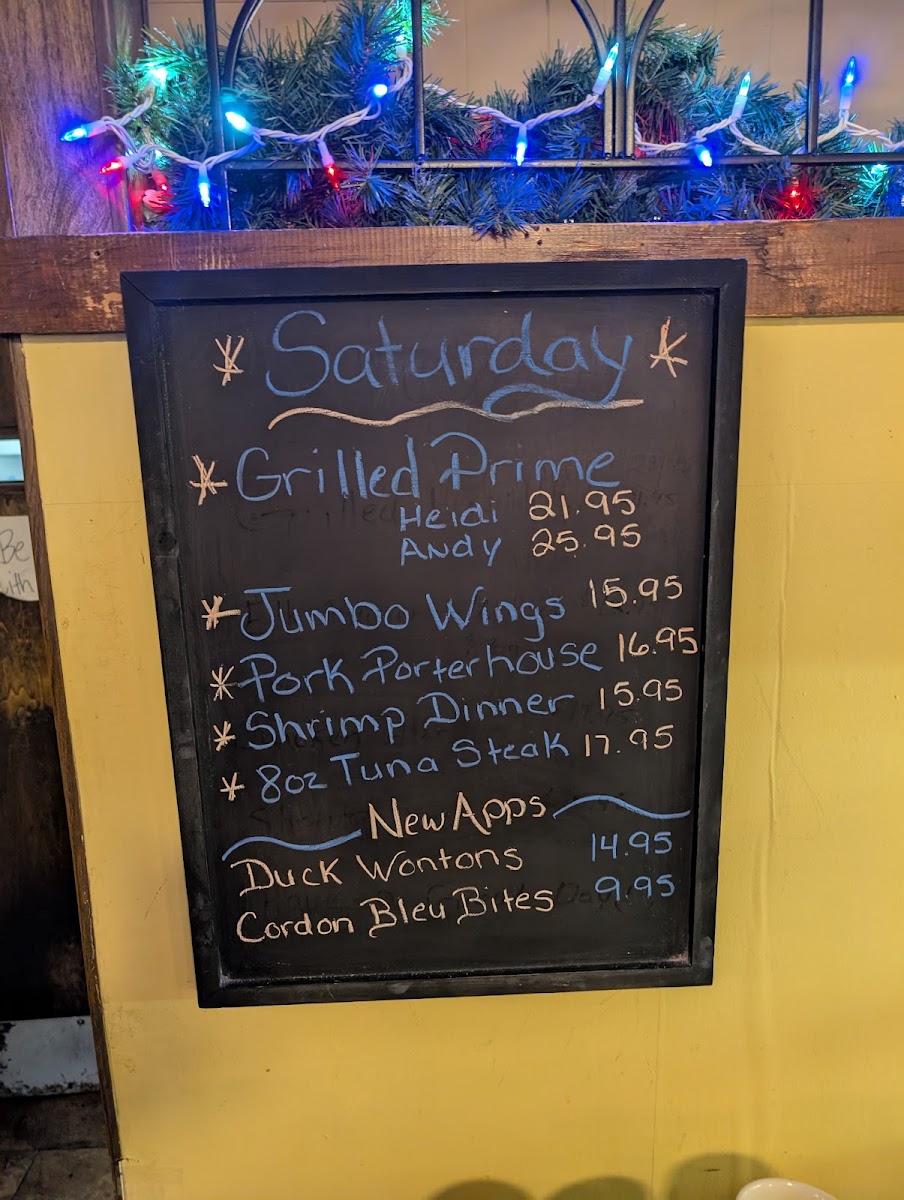 Saturday
Grilled Prime
Heidi 21.95
Andy 25.95
Jumbo Wings 15.95
Pork Porterhouse 16.95
Shrimp Dinner 15.95
8oz Tuna Steak 17.95
New Apps
Duck Wontons 14.95
Cordon Bleu Bites 9.95
Be